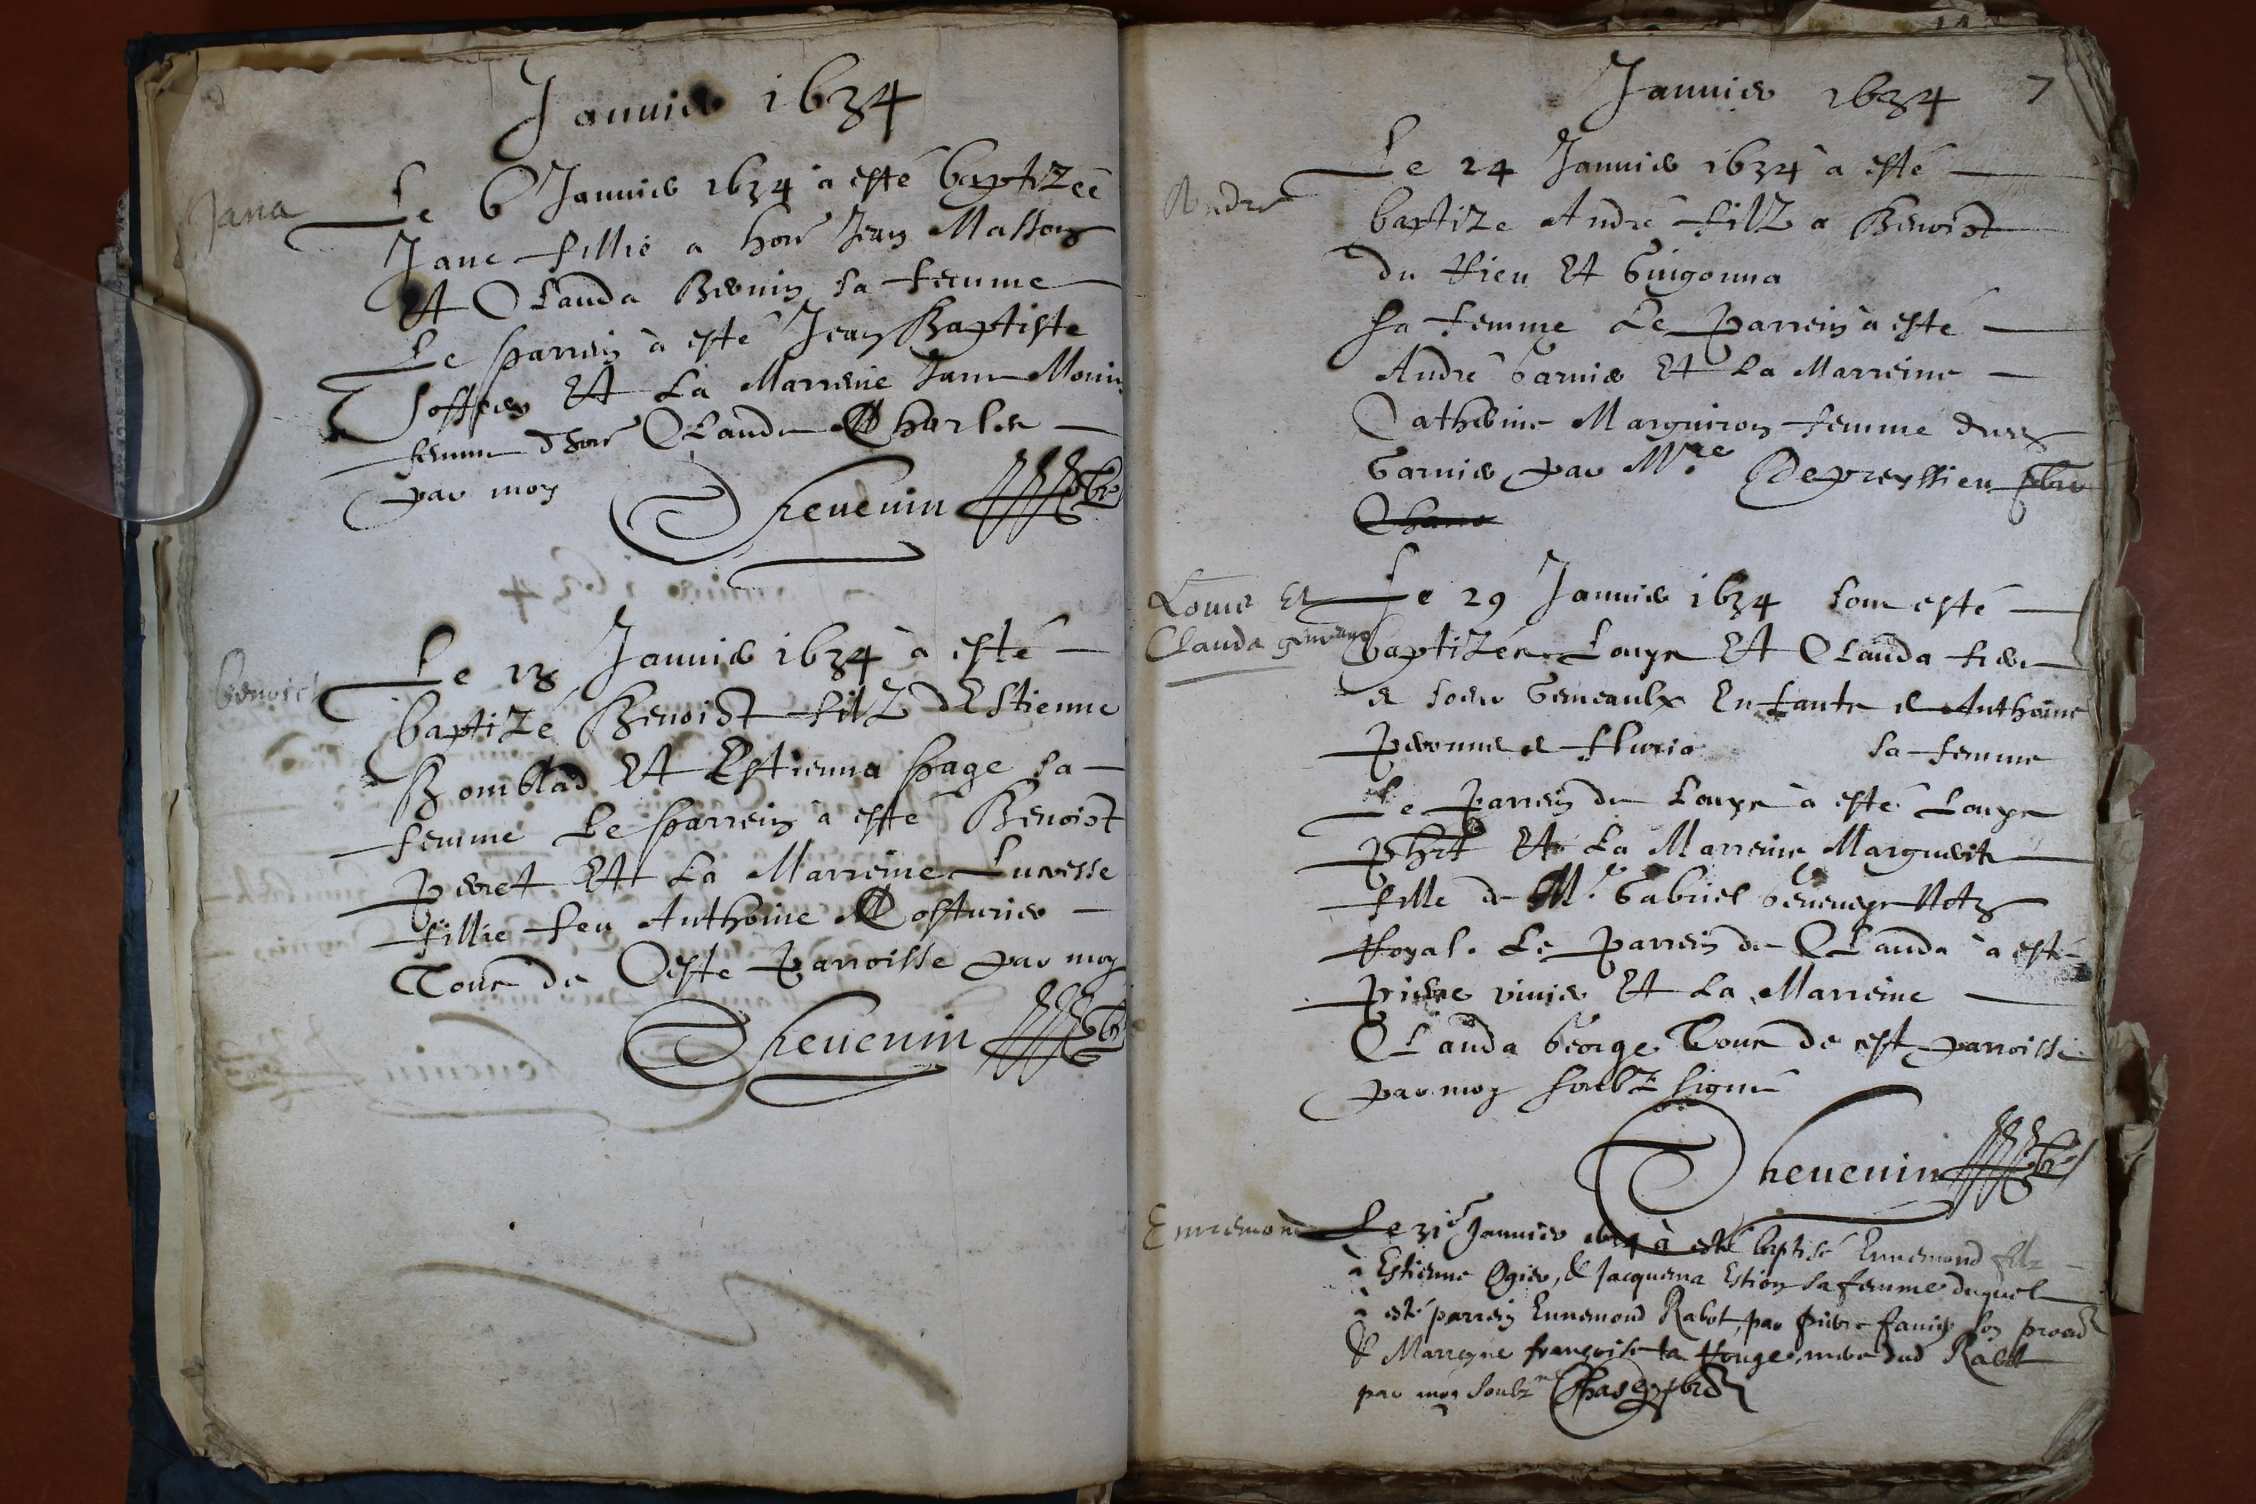 Januier 1634
Jana
Le 6 Januier 1634 à esté baptizée
Jane fillie a hon^e Jean Masson
Et Clauda Bernin sa femme
Le parrein à esté Jean Baptiste
Et La Marreine Jane Monin
femme dhon^e Claude Charles
par moy
Theuenin pbr
benoict
Le 18 Januier 1634 à esté
baptizé Benoict filz dEstienne
Bomblad Et Estienna page sa
femme Le parrein à esté Benoict
peret Et La Marreine Lucresse
fillie feu Anthoine Costurier
Tous de Ceste parroisse par moy
Theuenin pbr
Januier 1634 7
Andre
Le 24 Januier 1634 à esté
baptize André filz a Benoict
du Rieu Et Guigonna
sa femme Le parrein à esté
André Garnier Et La Marreine
Catherine Marguiron femme dud
Garnier par M^re Depreyssieu pbr
Louis Et
Clauda gemeaux
Le 29 Januier 1634 sont esté
baptizés Louys Et Clauda frere
et soeur Gemeaulx Enfants a Anthoine
peronnet et fluria sa femme
Le parrein du Louys à esté Louys
Et La Marreine Marguerite
fille de M^r. Gabriel Geneueys Not^e
Royal. Le parrein de Clauda à esté
pierre viuier Et La Marreine
Clauda George Tous de cest parroisse
par moy soubz signé
Theuenin pbr
Ennemond
Le 31^e Januier 1634 à esté baptisé Ennemond filz
à Estienne Ogier, & Jacquema Estion sa femme duquel
à esté parrein Ennemond Rabot, par pierre fanier son
& Marreyne françoise la Rouge, mere dud Rabot
par moy soubz^ne